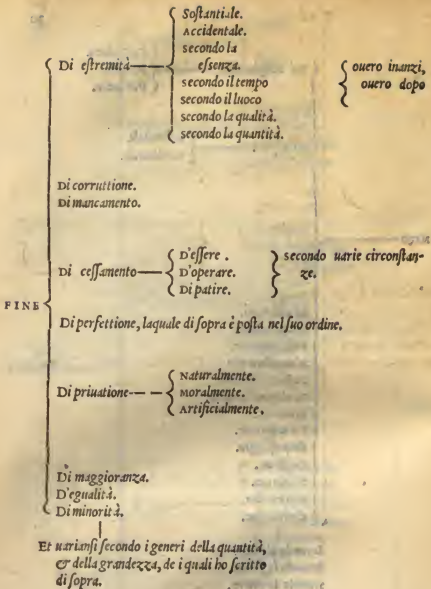 Sostantiale.
Accidentale.
secondo la
essenza.
Di estremità
secondo il tempo
secondo il luoco
secondo la qualità.
secondo la quantità.
ouero inanzi,
ouero dopo
Di corruttione.
Di mancamento.
Di cessamento
D'essere.
D'operare.
Di patire.
secondo uarie circonstan-
ze.
FINE
Di perfettione, laquale di sopra è posta nel suo ordine.
Di priuatione
Naturalmente.
Moralmente.
Artificialmente.
Di maggioranza.
D'egualità.
Di minorità.
Et uariansi secondo i generi della quantità,
& della grandezza, de i quali ho scritto
di sopra.